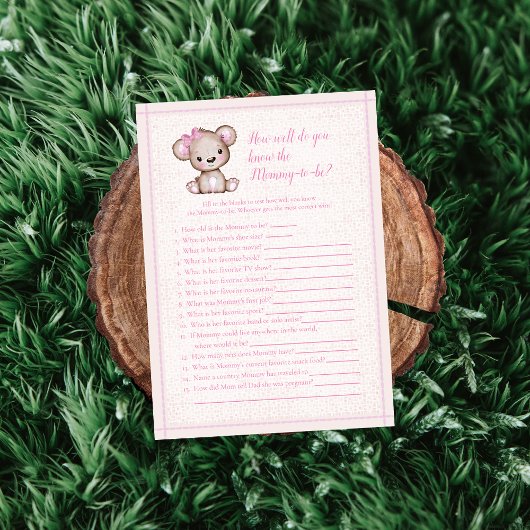 How well do you
know the
Mommy-to-be?
Fill in the blanks to test how well you know
the Mommy-to-be. Whoever gets the most correct wins
1. How old is the Mommy to be?
2. What is Mommy's shoe size?
3. What is her favorite movie?
4. What is her favorite book?
5. What is her favorite TV show?
6. What is her favorite dessert?
7. What is her favorite restaurant?
8. What was Mommy's first job?
9. What is her favorite sport?
10. Who is her favorite band or solo artist?
11. If Mommy could live anywhere in the world,
where would it be?
12. How many pets does Mommy have?
13. What is Mommy's current favorite snack food?
14. Name a country Mommy has traveled to
15. How did Mom tell Dad she was pregnant?